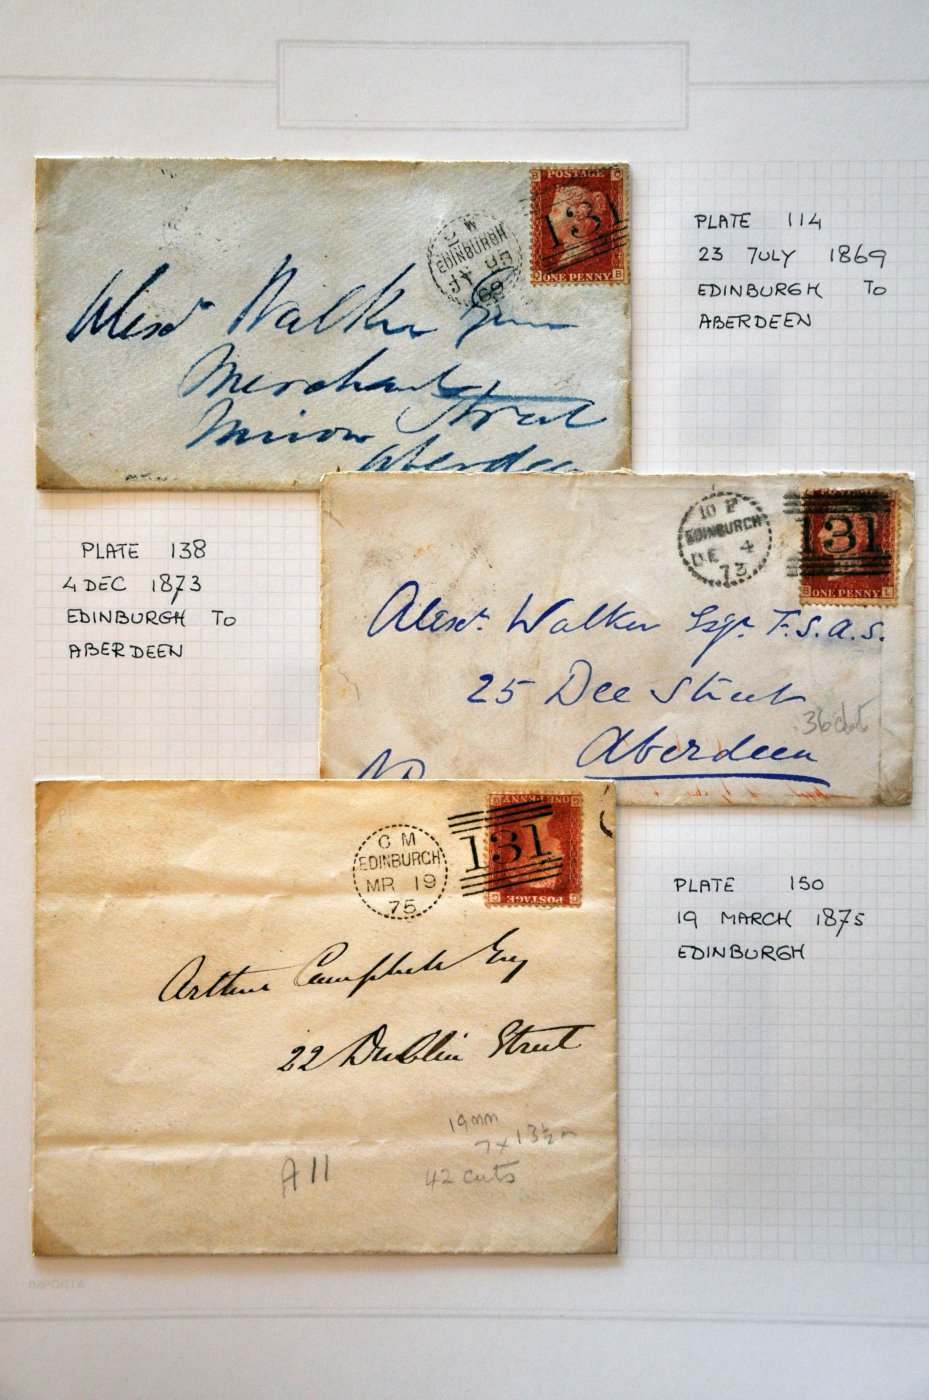 EDINBURGH
69
B O
POSTAGE
131
O ONE PENNY B
Alexr. Walker
Merchant
Street
Aberdeen
PLATE 114
23 JULY 1869
EDINBURGH TO
ABERDEEN
PLATE 138
4 DEC 1873
EDINBURGH TO
ABERDEEN
10 P
EDINBURGH
DE 4
73
131
B ONE PENNY L
Alexr. Walker Esqr. F.S.A.S.
25 Dee Street
Aberdeen
36 dots
G M
EDINBURGH
MR 19
75
ONE PENNY
131
POSTAGE
Arthur Campbell Esq
22 Dublin Street
19mm
7 x 13½
42 cuts
A 11
PLATE 150
19 MARCH 1875
EDINBURGH